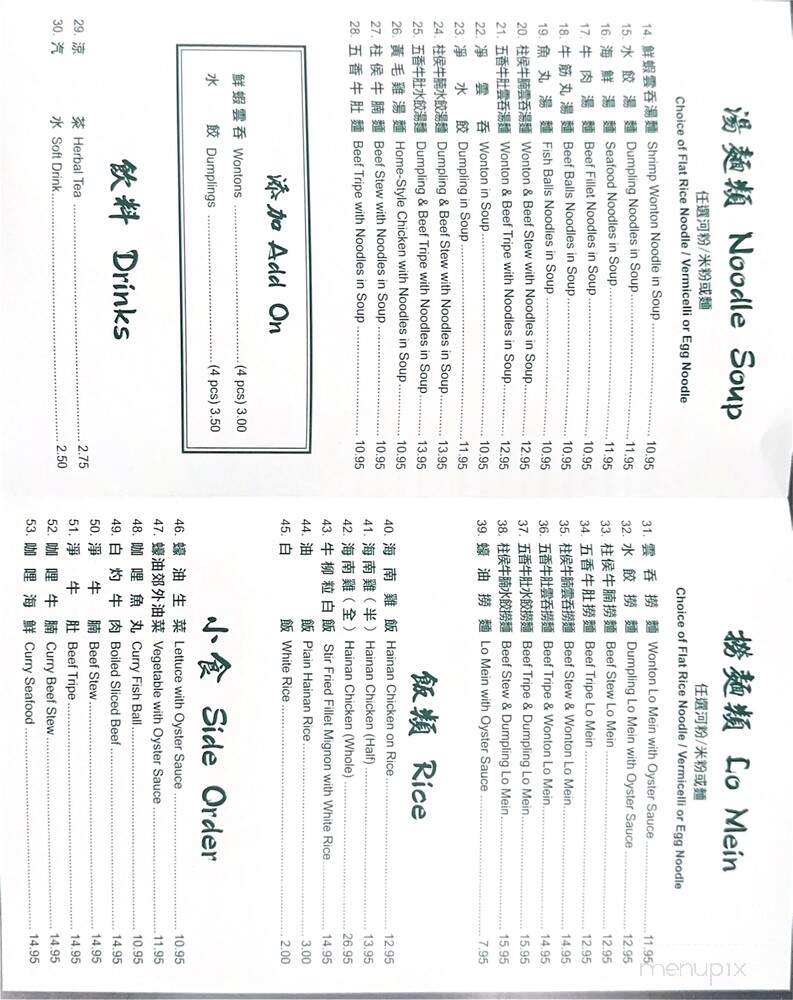 湯麵類 Noodle Soup
任選河粉/米粉或麵
Choice of Flat Rice Noodle / Vermicelli or Egg Noodle
14. 鮮蝦雲吞湯麵 Shrimp Wonton Noodle in Soup 10.95
15. 水餃湯麵 Dumpling Noodles in Soup 11.95
16. 海鮮湯麵 Seafood Noodles in Soup 11.95
17. 牛肉湯麵 Beef Fillet Noodles in Soup 10.95
18. 牛筋丸湯麵 Beef Balls Noodles in Soup 10.95
19. 魚丸湯麵 Fish Balls Noodles in Soup 10.95
20. 柱侯牛腩雲吞湯麵 Wonton & Beef Stew with Noodles in Soup 12.95
21. 五香牛肚雲吞湯麵 Wonton & Beef Tripe with Noodles in Soup 12.95
22. 淨雲吞 Wonton in Soup 10.95
23. 淨水餃 Dumpling in Soup 11.95
24. 柱侯牛腩水餃湯麵 Dumpling & Beef Stew with Noodles in Soup 13.95
25. 五香牛肚水餃湯麵 Dumpling & Beef Tripe with Noodles in Soup 13.95
26. 黃毛雞湯麵 Home-Style Chicken with Noodles in Soup 10.95
27. 柱侯牛腩麵 Beef Stew with Noodles in Soup 10.95
28. 五香牛肚麵 Beef Tripe with Noodles in Soup 10.95
添加 Add On
鮮蝦雲吞 Wontons (4 pcs) 3.00
水餃 Dumplings (4 pcs) 3.50
飲料 Drinks
29. 涼茶 Herbal Tea 2.75
30. 汽水 Soft Drink 2.50
撈麵類 Lo Mein
任選河粉/米粉或麵
Choice of Flat Rice Noodle / Vermicelli or Egg Noodle
31. 雲吞撈麵 Wonton Lo Mein with Oyster Sauce 11.95
32. 水餃撈麵 Dumpling Lo Mein with Oyster Sauce 12.95
33. 柱侯牛腩撈麵 Beef Stew Lo Mein 12.95
34. 五香牛肚撈麵 Beef Tripe Lo Mein 12.95
35. 柱侯牛腩雲吞撈麵 Beef Stew & Wonton Lo Mein 14.95
36. 五香牛肚雲吞撈麵 Beef Tripe & Wonton Lo Mein 14.95
37. 五香牛肚水餃撈麵 Beef Tripe & Dumpling Lo Mein 15.95
38. 柱侯牛腩水餃撈麵 Beef Stew & Dumpling Lo Mein 15.95
39. 蠔油撈麵 Lo Mein with Oyster Sauce 7.95
飯類 Rice
40. 海南雞飯 Hainan Chicken on Rice 12.95
41. 海南雞(半) Hainan Chicken (Half) 13.95
42. 海南雞(全) Hainan Chicken (Whole) 26.95
43. 牛柳粒白飯 Stir Fried Fillet Mignon with White Rice 14.95
44. 油飯 Plain Hainan Rice 3.00
45. 白飯 White Rice 2.00
小食 Side Order
46. 蠔油生菜 Lettuce with Oyster Sauce 10.95
47. 蠔油郊外油菜 Vegetable with Oyster Sauce 11.95
48. 咖哩魚丸 Curry Fish Ball 10.95
49. 白灼牛肉 Boiled Sliced Beef 14.95
50. 淨牛腩 Beef Stew 14.95
51. 淨牛肚 Beef Tripe 14.95
52. 咖哩牛腩 Curry Beef Stew 14.95
53. 咖哩海鮮 Curry Seafood 14.95
menupix